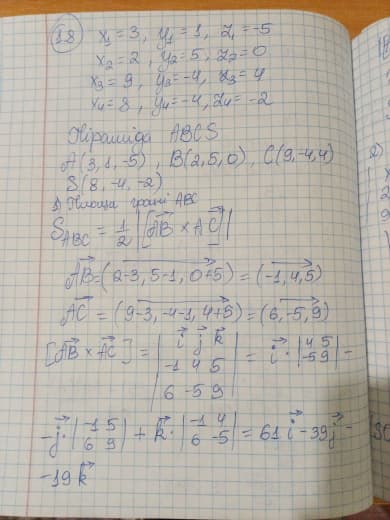 18 x₁ = 3, y₁ = 1, z₁ = -5
x₂ = 2, y₂ = 5, z₂ = 0
x₃ = 9, y₃ = -4, z₃ = 4
x₄ = 8, y₄ = -4, z₄ = -2
Піраміда ABCS
A(3,1,-5), B(2,5,0), C(9,-4,4)
S(8,-4,-2)
1) Площа грані ABC
S_ABC = 1/2 |[AB⃗ × AC⃗]|
AB⃗ = (2-3, 5-1, 0+5) = (-1,4,5)
AC⃗ = (9-3, -4-1, 4+5) = (6,-5,9)
[AB⃗ × AC⃗] = | i⃗ j⃗ k⃗ | = i⃗ · | 4 5 | -
| -1 4 5 | | -5 9 |
| 6 -5 9 |
- j⃗ · | -1 5 | + k⃗ · | -1 4 | = 61 i⃗ - 39 j⃗ -
| 6 9 | | 6 -5 |
-19 k⃗